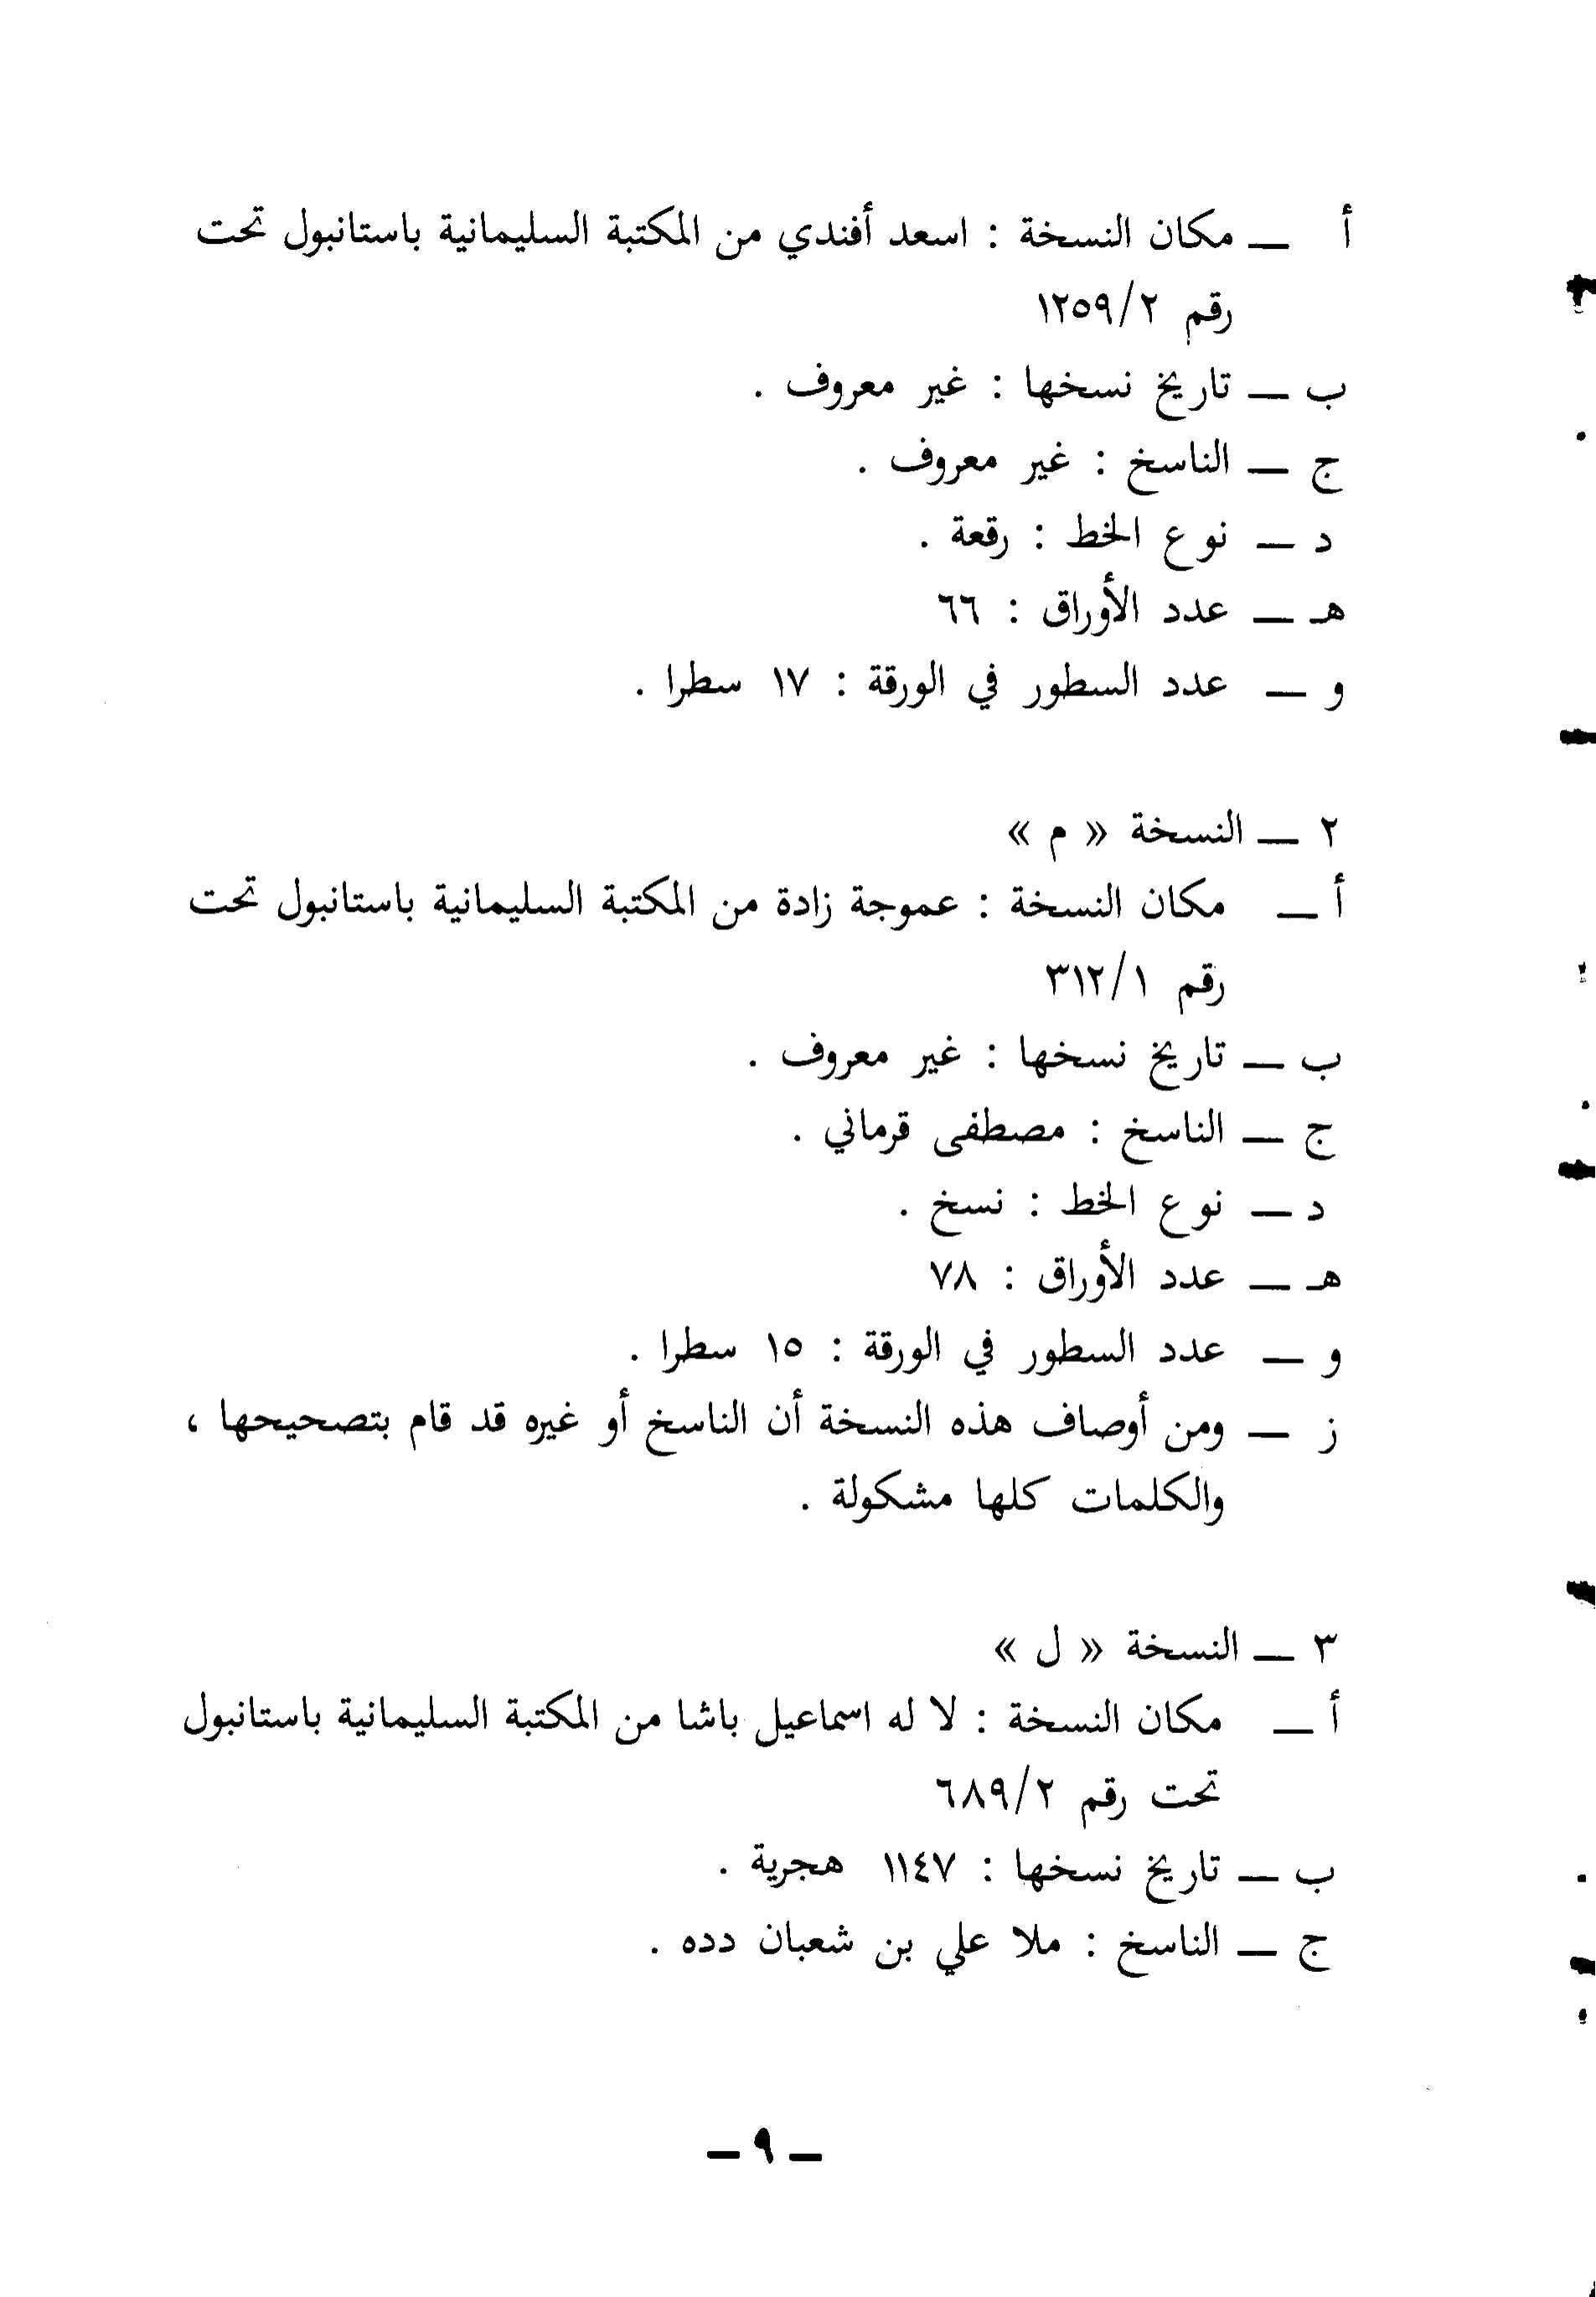 أ — مكان النسخة : اسعد أفندي من المكتبة السليمانية باستانبول تحت
رقم ١٢٥٩/٢
ب — تاريخ نسخها : غير معروف .
ج — الناسخ : غير معروف .
د — نوع الخط : رقعة .
هـ — عدد الأوراق : ٦٦
و — عدد السطور في الورقة : ١٧ سطرا .
٢ — النسخة « م »
أ — مكان النسخة : عموجة زادة من المكتبة السليمانية باستانبول تحت
رقم ٣١٢/١
ب — تاريخ نسخها : غير معروف .
ج — الناسخ : مصطفى قرماني .
د — نوع الخط : نسخ .
هـ — عدد الأوراق : ٧٨
و — عدد السطور في الورقة : ١٥ سطرا .
ز — ومن أوصاف هذه النسخة أن الناسخ أو غيره قد قام بتصحيحها ،
والكلمات كلها مشكولة .
٣ — النسخة « ل »
أ — مكان النسخة : لا له اسماعيل باشا من المكتبة السليمانية باستانبول
تحت رقم ٦٨٩/٢
ب — تاريخ نسخها : ١١٤٧ هجرية .
ج — الناسخ : ملا علي بن شعبان دده .
— ٩ —